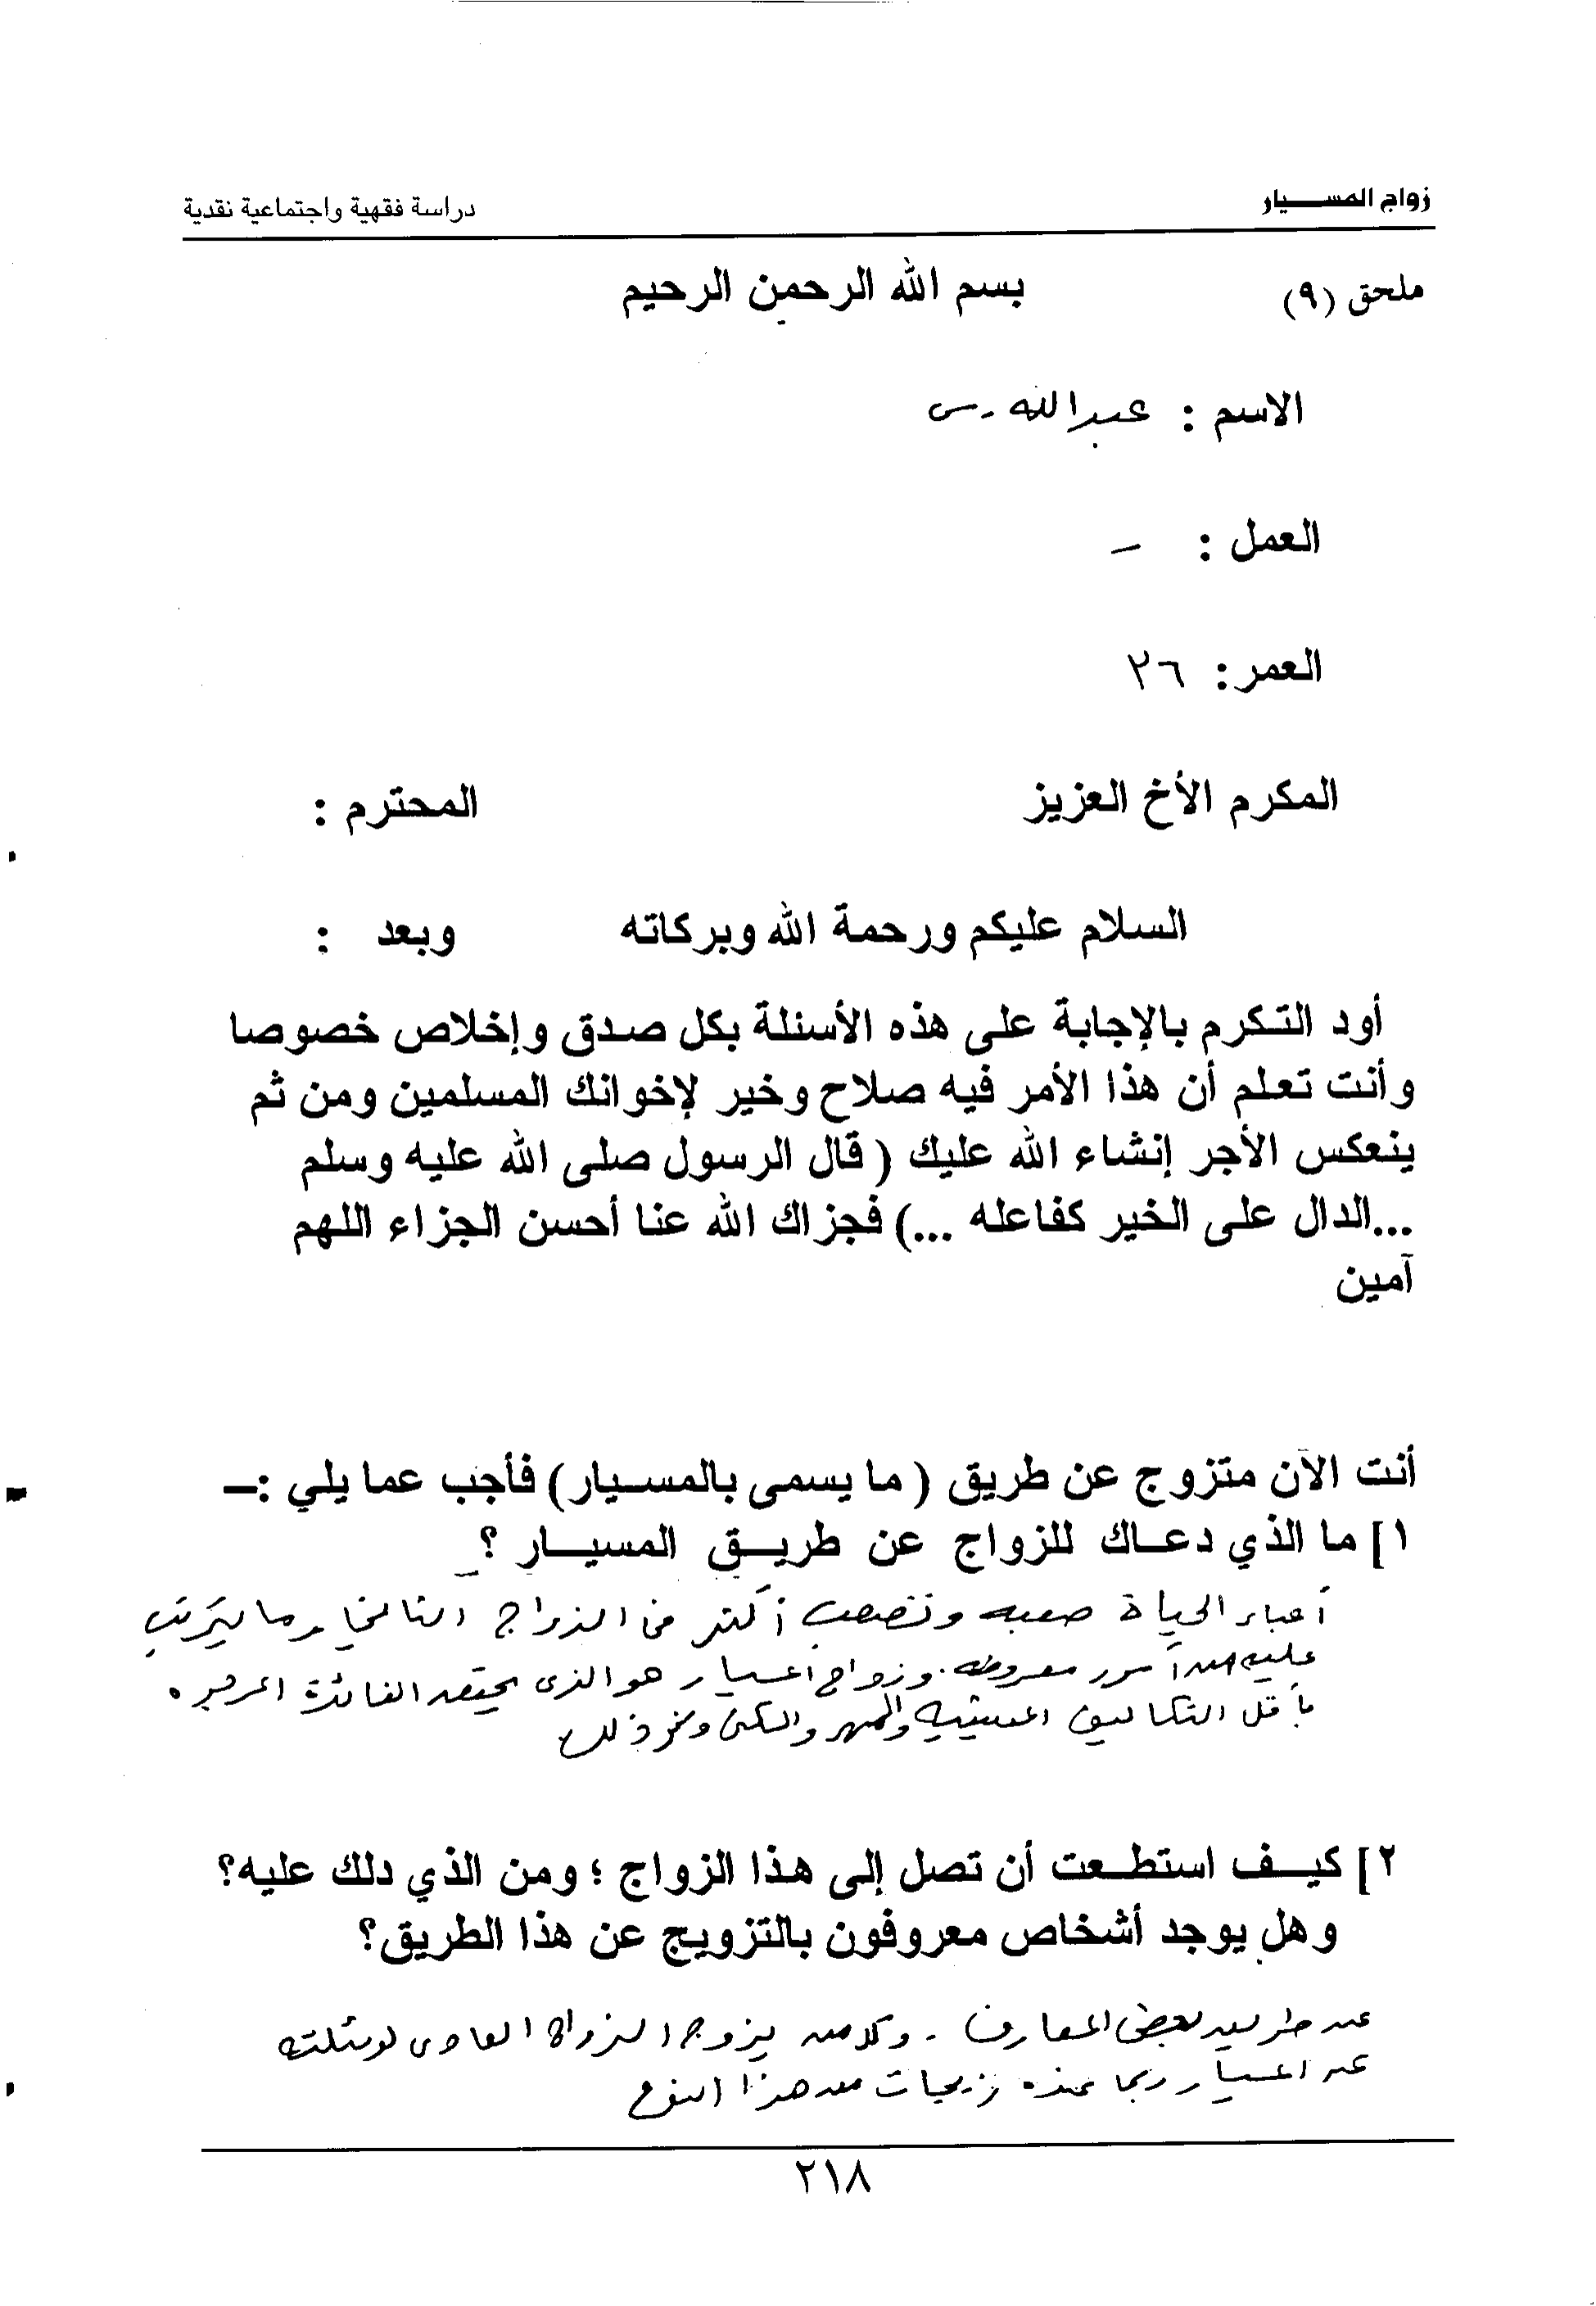 زواج المسيار
دراسة فقهية واجتماعية نقدية
ملحق (٩)
بسم الله الرحمن الرحيم
الاسم : عبدالله .س
العمل : -
العمر : ٢٦
المكرم الأخ العزيز المحترم :
السلام عليكم ورحمة الله وبركاته وبعد :
أود التكرم بالإجابة على هذه الأسئلة بكل صدق وإخلاص خصوصا
وأنت تعلم أن هذا الأمر فيه صلاح وخير لإخوانك المسلمين ومن ثم
ينعكس الأجر إنشاء الله عليك ( قال الرسول صلى الله عليه وسلم
...الدال على الخير كفاعله ...) فجزاك الله عنا أحسن الجزاء اللهم
آمين
أنت الآن متزوج عن طريق ( ما يسمى بالمسيار ) فأجب عما يلي :-
١ ] ما الذي دعاك للزواج عن طريق المسيار ؟
أعباء الحياة صعبه وتصعب أكثر في الزواج الثاني وما يترتب
عليه من أمور معروفه . وزواج المسيار هو الذي يحقق الفائدة المرجوه
بأقل التكاليف المعيشيه والمهر والسكن ونحو ذلك
٢ ] كيف استطعت أن تصل إلى هذا الزواج ؛ ومن الذي دلك عليه؟
وهل يوجد أشخاص معروفون بالتزويج عن هذا الطريق؟
عن طريق بعض المعارف . وكل من يزوج الزواج العادي لو سئلته
عن المسيار ربما عنده زيجات من هذا النوع
٢١٨